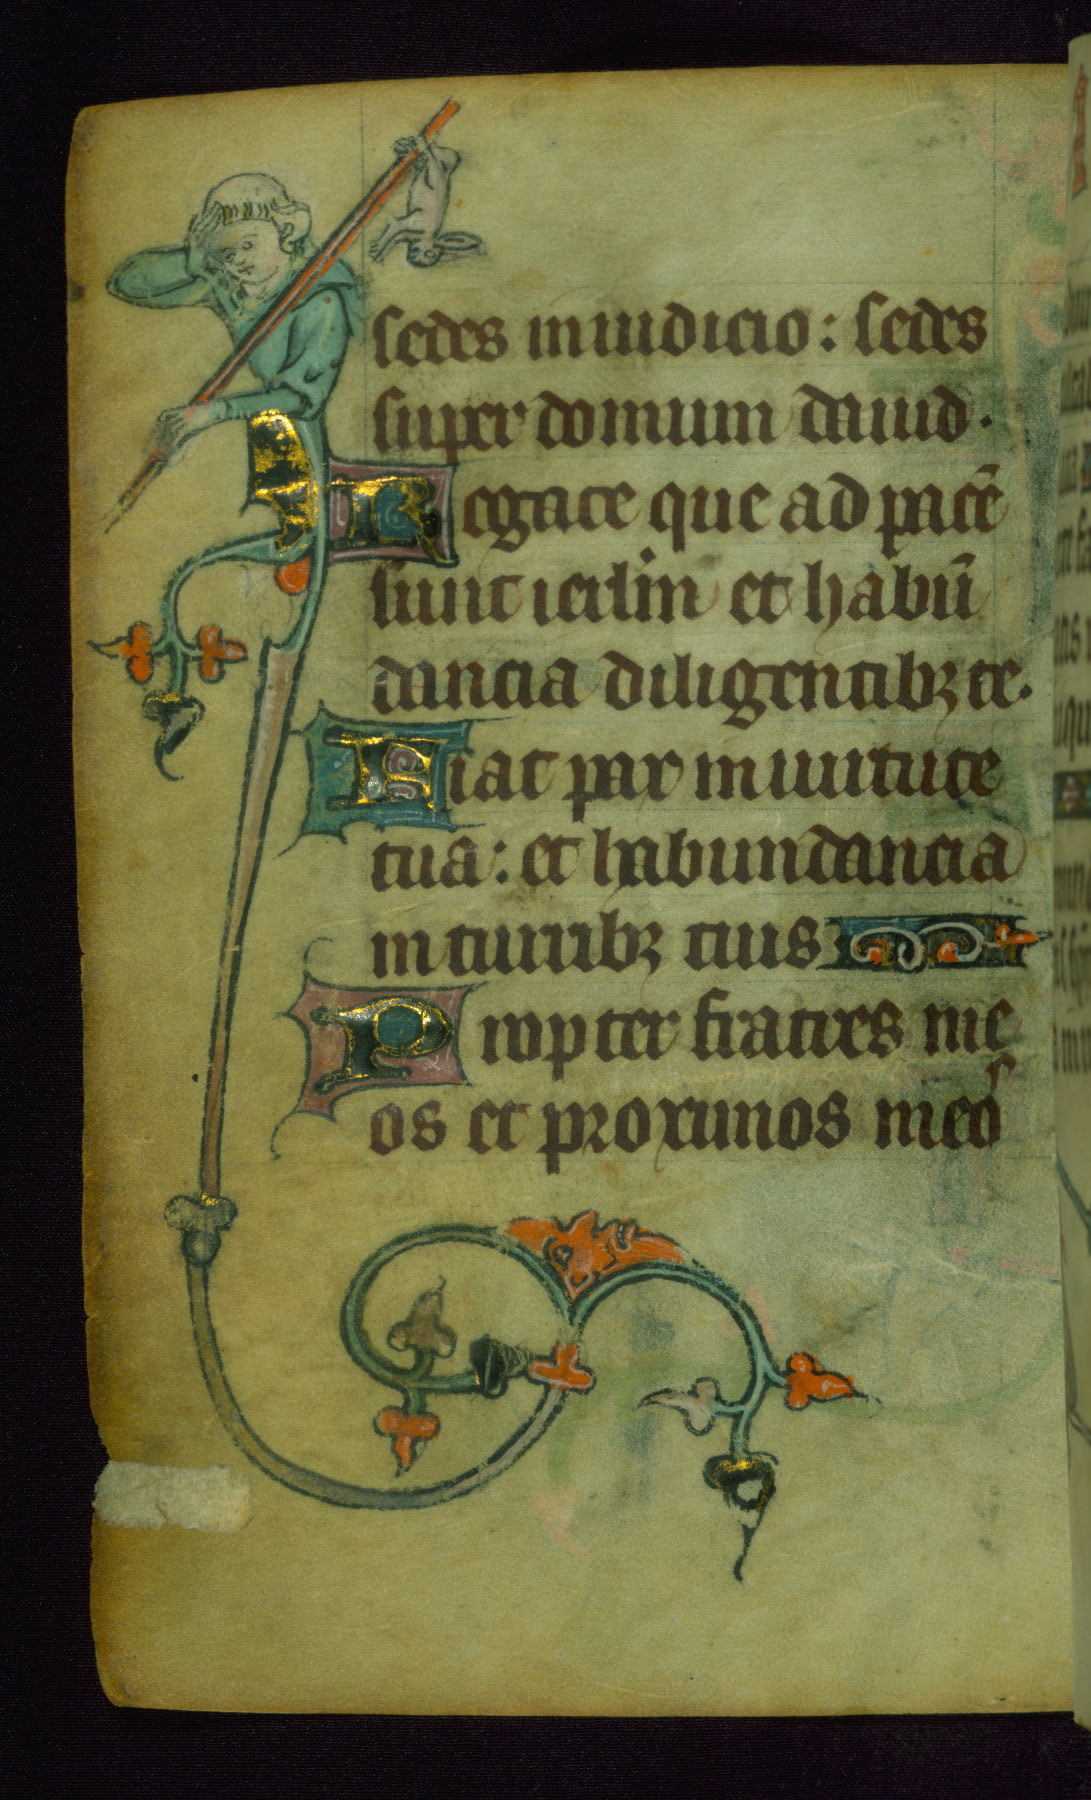 sedes in iudicio : sedes
super domum dauid .
Rogate que ad pacē
sunt ierlm̄ et habū
dancia diligentibꝫ te .
Fiat pax in uirtute
tua : et habundancia
in turribꝫ tuis
Propter fratres me
os et proximos meos